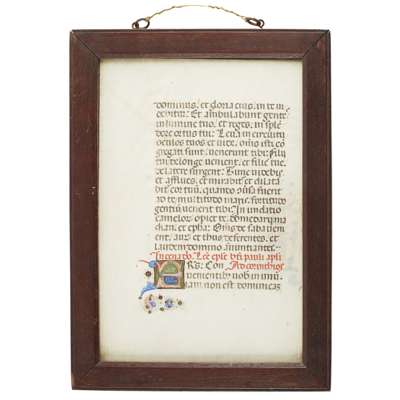 dominus, et gloria eius, in te ui
debitur. Et ambulabunt gente
in lumine tuo, et reges, in splē
dore ortus tui. Leua in circuitu
oculos tuos et uide. omīs isti cō
gregati sunt uenerunt tibi. filij
tui de longe uenient, et filie tue
de latere surgent. Tunc uidebis
et afflues, et mirabit et dilata
bit cor tuū, quando
ad te multitudo maris, fortitudo
gentiū uenerit tibi. Inundatio
camelor opiet te. dromedarij ma
dian, et epha. Omīs de saba uenient,
aur et thus deferentes, et
laudem domino annuntiantes.
Lcō epłe bti pauli apłi
Ad corinthios
FRS. Con
uenientibus uob in unū,
iam non est dominicam